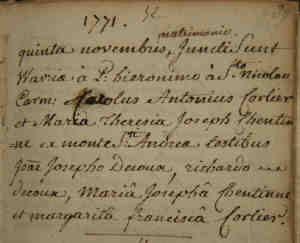 1771. 52
matrimonio
quinta novembris, Juncti Sunt
Wavriæ à P: hieronimo à S.to Nicolao
Carm: Carolus Antonius Cortier
et Maria Theresia Joseph Thentin=
ne ex monte S.ti Andreæ testibus
joãe Josepho Decoux, richardo
decoux, Mariâ Josephâ Thentinne
et margaritâ franciscâ Cortier